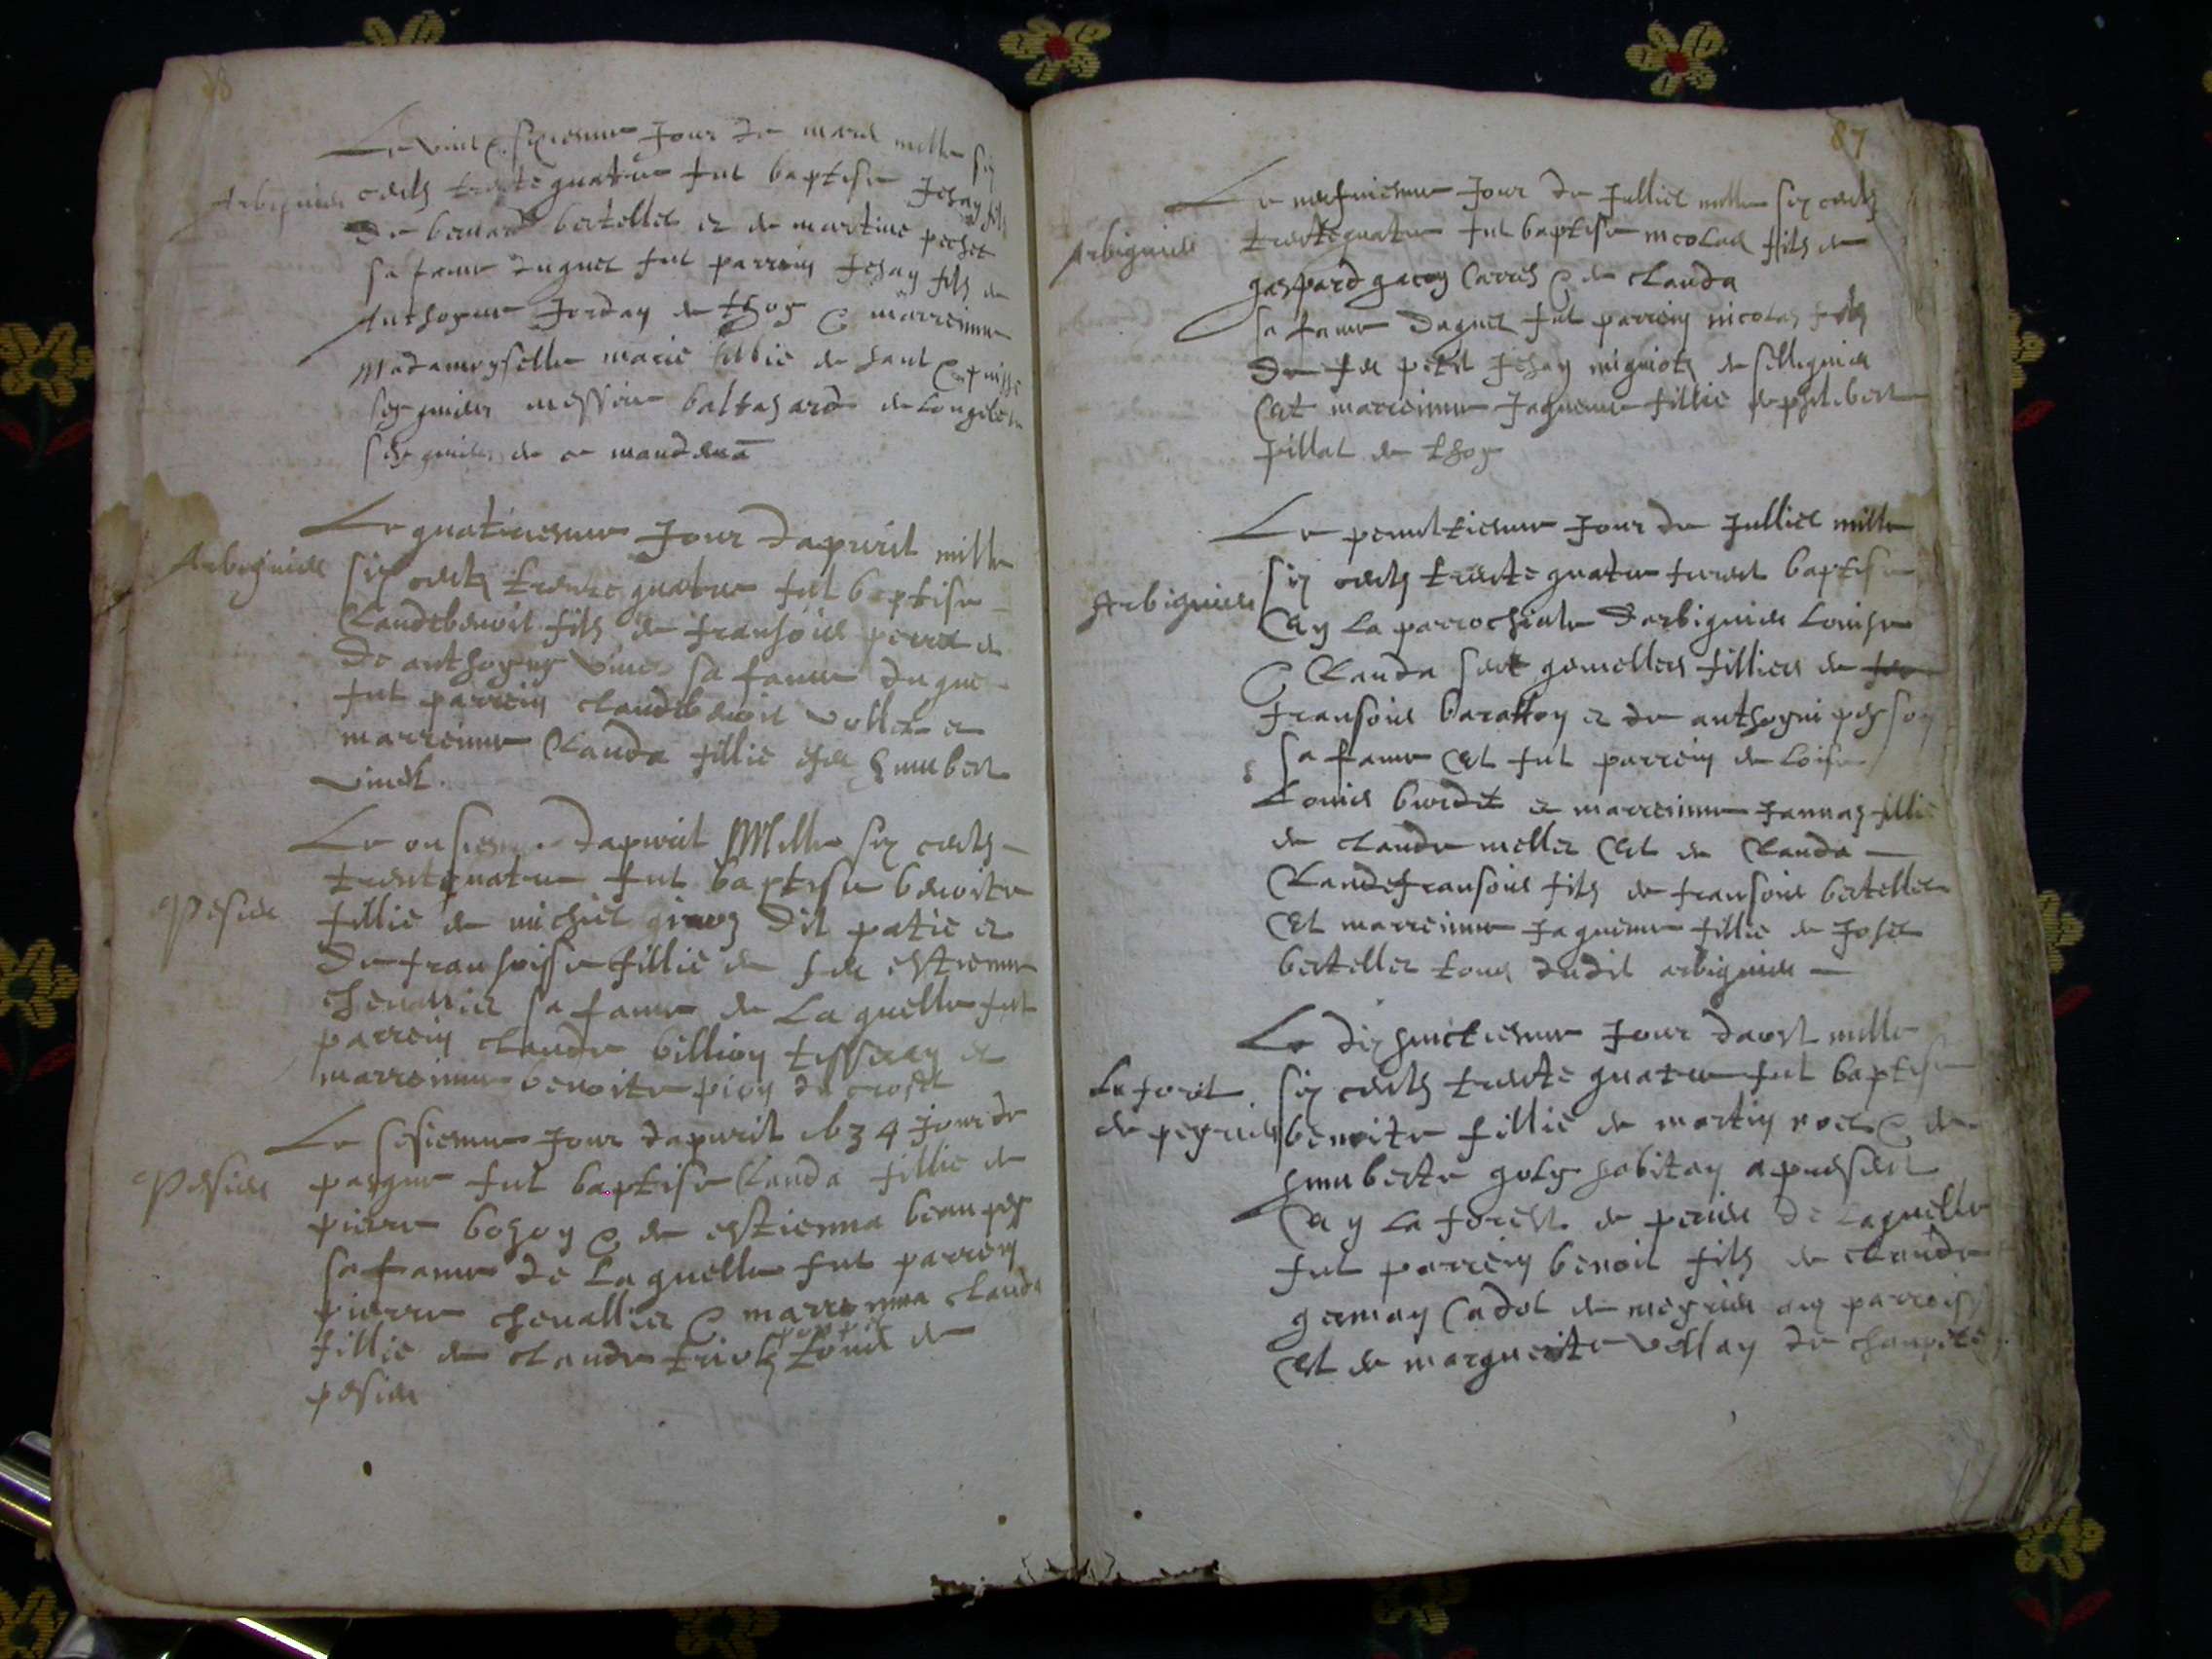 Le vint & sixiesme Jour de mars mille six
Arbignieu cents trente quatre fut baptise Jehan fils
de bernard bertellet et de martine pechet
sa fame duquel fut parrein Jehan fils de
Anthoyne Jordan de thoy & marreinne
Madamoyselle marie fillie de haut & puisst
seigneur messire baltasard de Longecombe
seigneur de ce mandemã
Arbignieu
Le quatriesme Jour dapvril mille
six cents trente quatre fut baptise
Claudebenoit fils de fransois perret et
de anthoyny sa fame duquel
fut parrein claudebenoit vollet et
marreinne Clauda fillie feu humbert
vinet.
Le onsiesme dapvril Mille six cents
trentequatre fut baptise benoite
Pesieu fillie de michiel giroz dit patie et
de fransoisse fillie de feu estienne
chevallier sa fame de Laquelle fut
parrein claude billion tisseran et
marrenne benoite pion du crost
Le sesiesme Jour dapvril 1634 Jour de
Pesieu pasque fut baptise Clauda fillie de
pierre bozon & de estienna beaupey
sa fame de Laquelle fut parrein
pierre chevallier & marrenna clauda
fillie de claude trioz tous de
pesieu
87
Le neufviesme Jour de Julliet mille six cents
Arbignieu trentequatre fut baptise nicolas fils de
gaspard gacon Carres & de clauda
sa fame duquel fut parrein nicolas fils
de feu petit Jehan migniot de sillignieu
Et marreinne Jaqueme fillie de philibert
pillat de thoy
Le penultiesme Jour de Julliet mille
Arbignieu six cents trente quatre furent baptise
En La parrochiale darbignieu Louise
& Clauda sont gemelles fillies de
fransois baratton et de anthoyni peyson
sa fame Et fut parrein de Loise
Louis burdet et marreinne Janna fillie
de claude mellet Et de Clauda
Claudefransois fils de fransois bertellet
Et marreinne Jaqueme fillie de Joset
bertellet tous dudit arbignieu
Le dixhuictiesme Jour daost mille
La forest six cents trente quatre fut baptise
de peyrieu benoite fillie de martin roet & de
humberte goly habitan a present
En La forest de perieu de Laquelle
fut parrein benoit fils de claude
germain Cadot de meyrieu
Et de marguerite vellay de